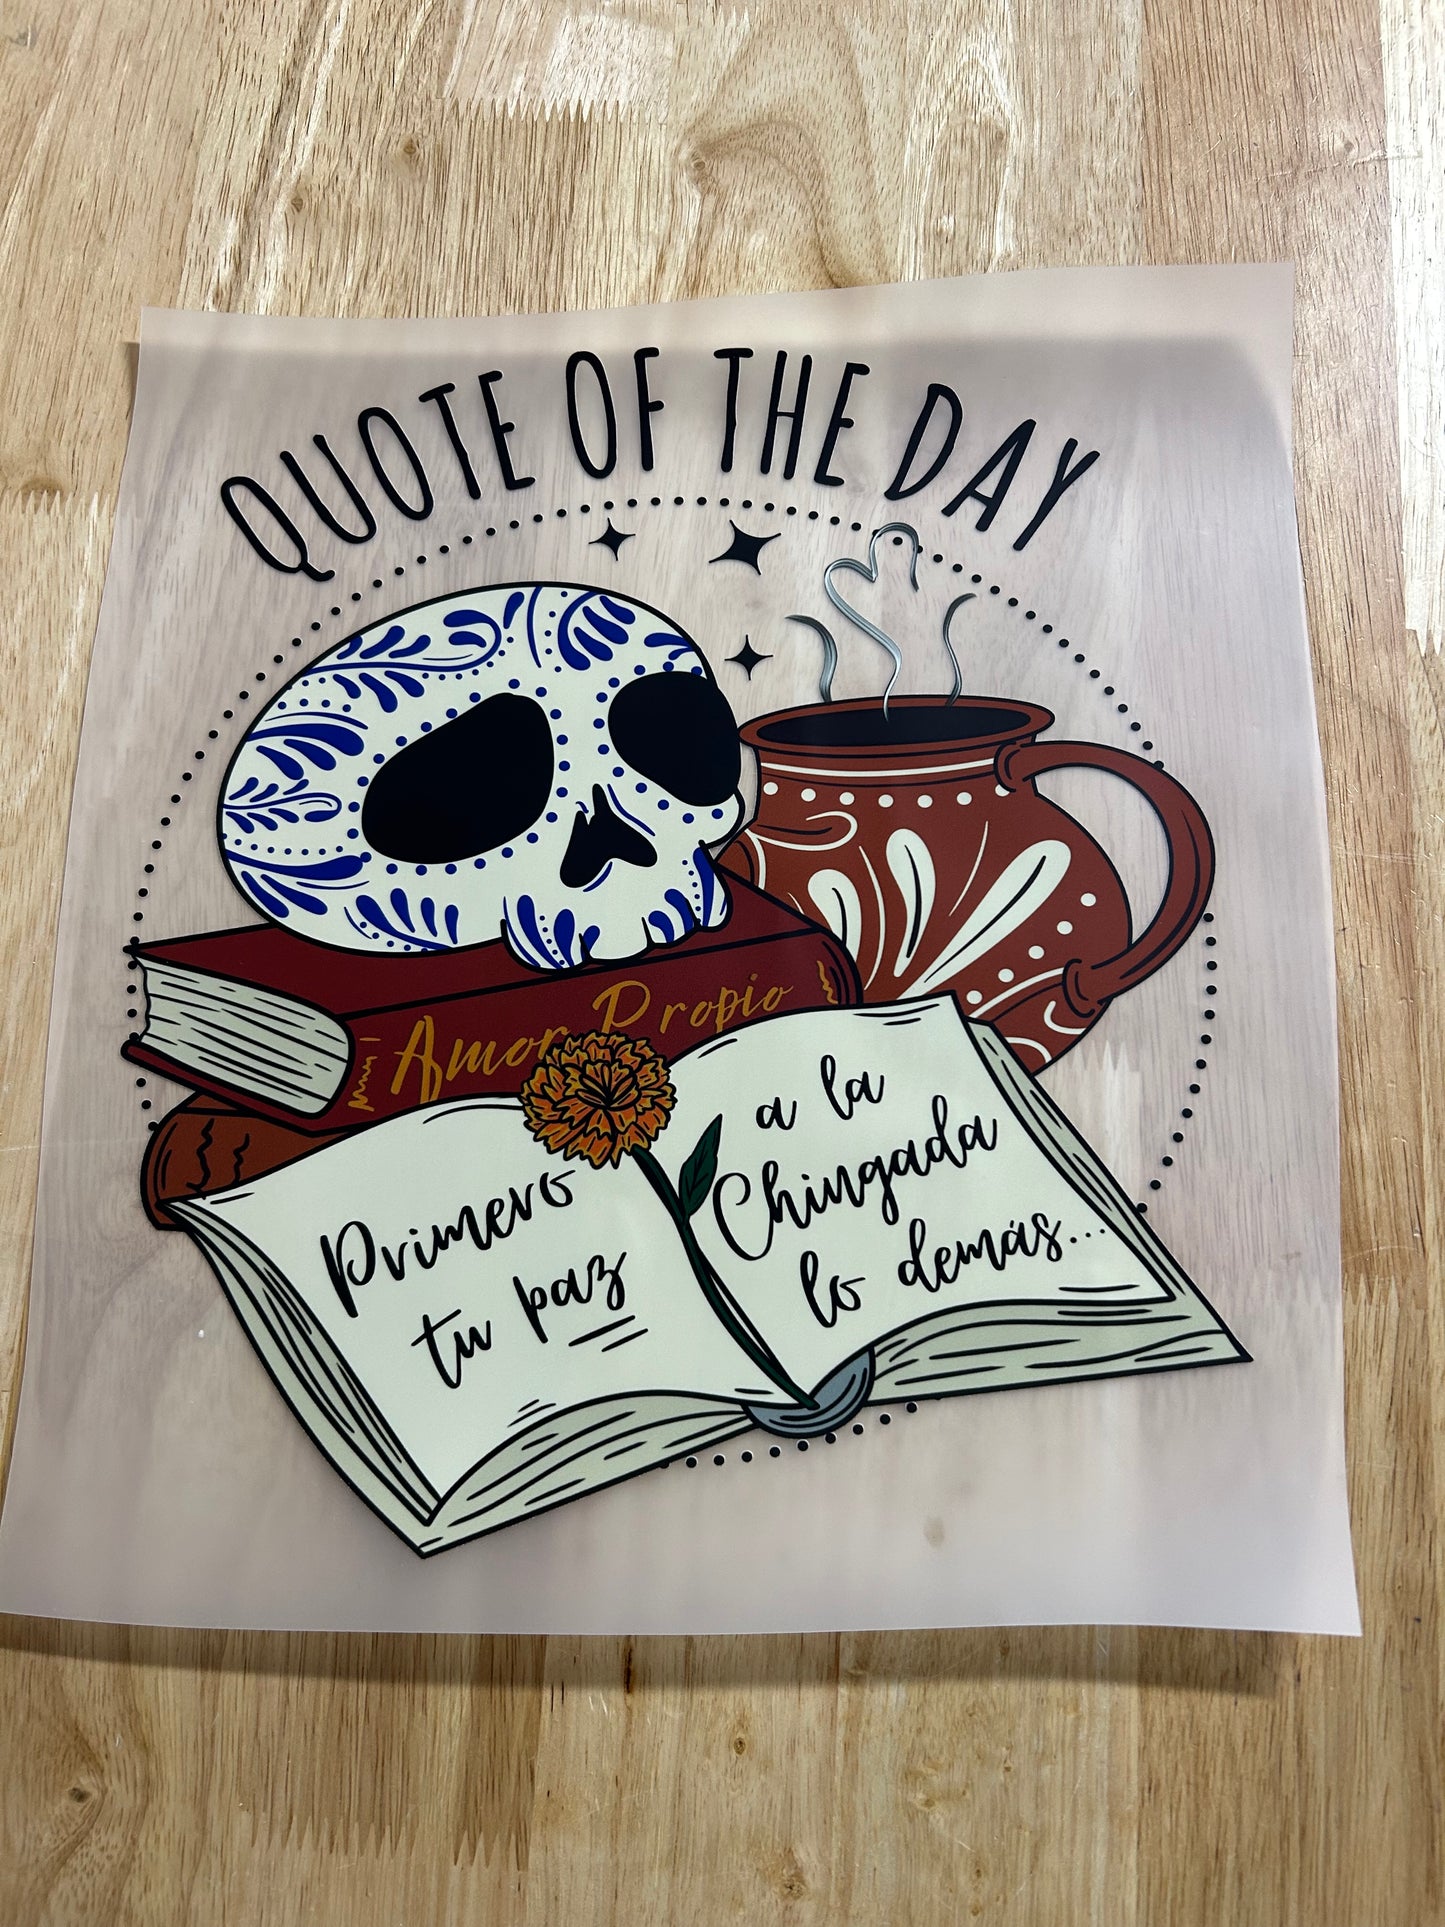 QUOTE OF THE DAY
Amor Propio
Primero
tu paz
a la
Chingada
lo demás...